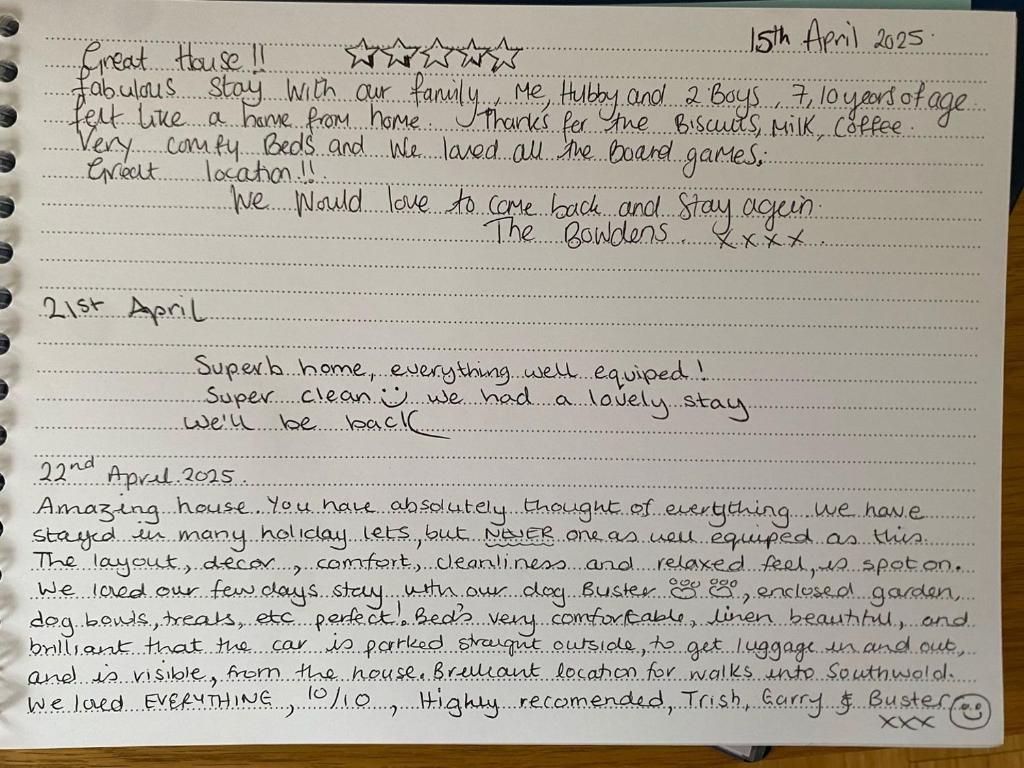 15th April 2025.
Great House!! ☆☆☆☆☆
fabulous stay with our family, Me, Hubby and 2 Boys, 7, 10 years of age
felt like a home from home. Thanks for the Biscuits, Milk, Coffee.
Very comfy Beds and We loved all the Board games.
Great location!!
We Would love to come back and Stay again.
The Bowdens. xxxx.
21st April
Superb home, everything well equiped!
Super clean :) we had a lovely stay
We'll be back
22nd April 2025.
Amazing house. You have absolutely thought of everything. We have
stayed in many holiday lets, but NEVER one as well equiped as this.
The layout, decor, comfort, cleanliness and relaxed feel, is spot on.
We loved our few days stay with our dog Buster 🐾 🐾, enclosed garden,
dog bowls, treats, etc perfect! Bed's very comfortable, linen beautiful, and
brilliant that the car is parked straight outside, to get luggage in and out,
and is visible, from the house. Brilliant location for walks into Southwold.
We loved EVERYTHING, 10/10, Highly recomended, Trish, Garry & Buster
xxx ☺